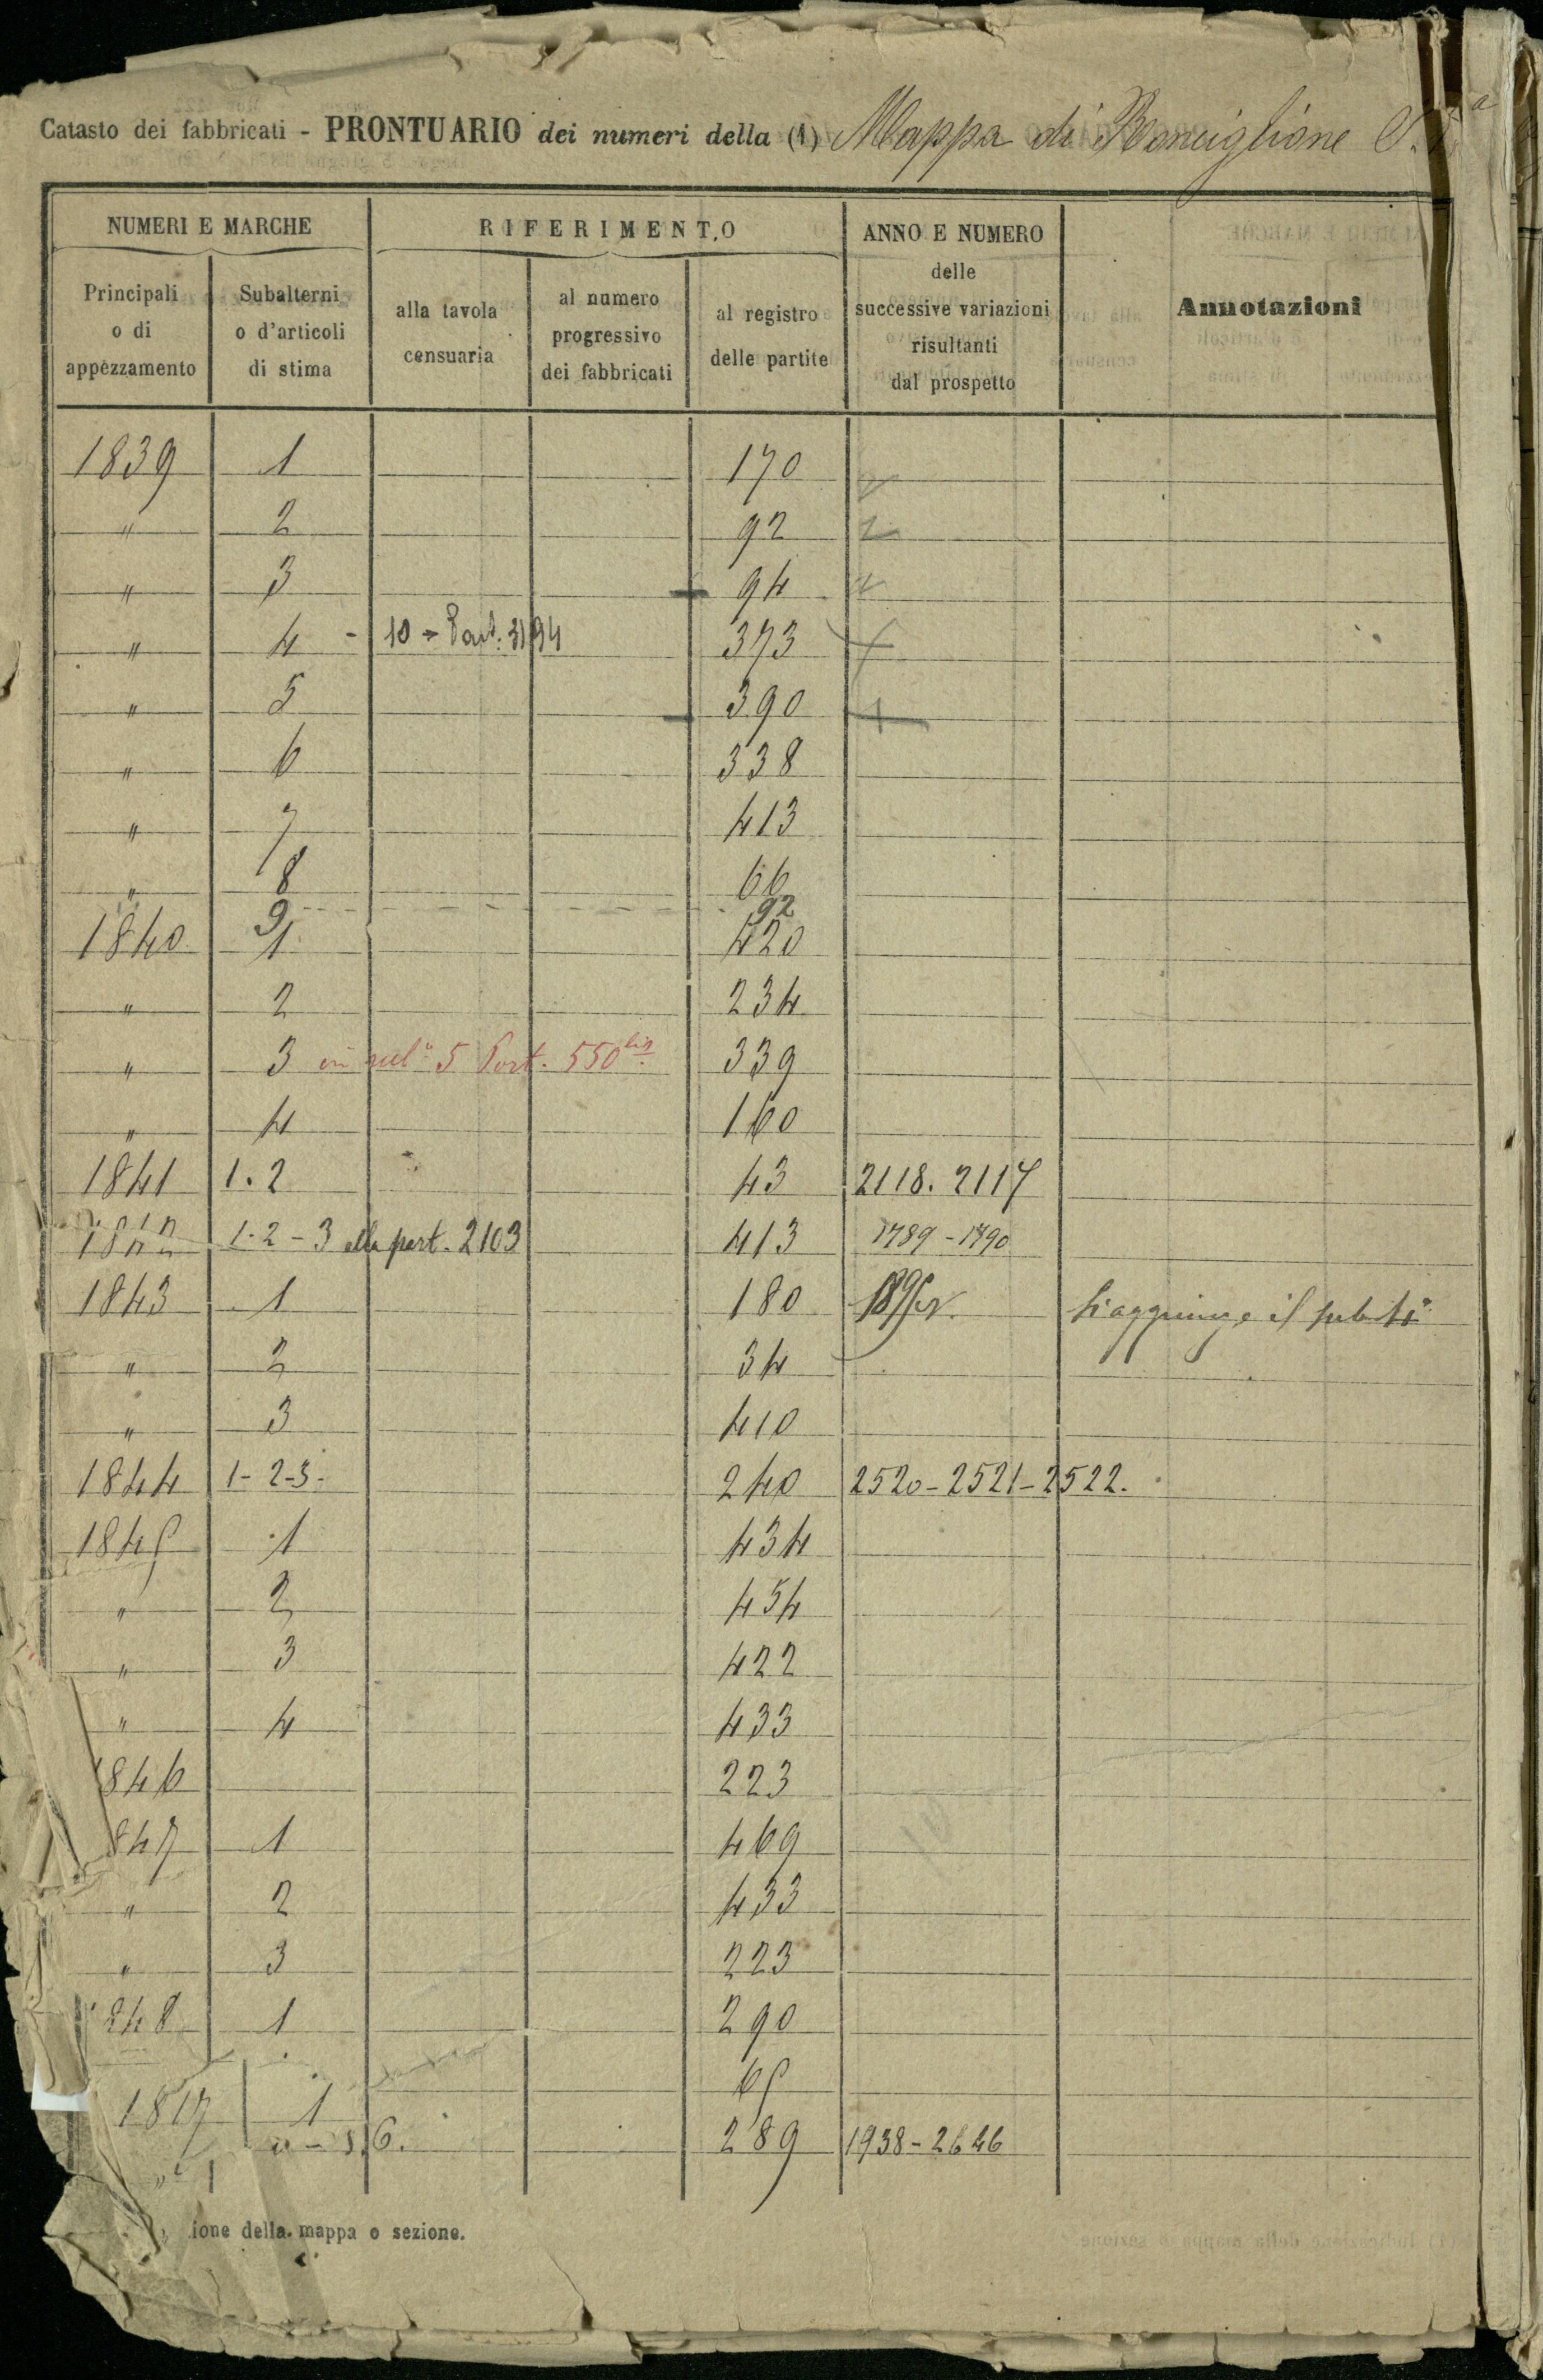 Catasto dei fabbricati - PRONTUARIO dei numeri della (1) Mappa di Ronciglione S.
NUMERI E MARCHE RIFERIMENTO ANNO E NUMERO delle successive variazioni risultanti dal prospetto Annotazioni
Principali o di appezzamento Subalterni o d'articoli di stima alla tavola censuaria al numero progressivo dei fabbricati al registro delle partite
1839 1 170
" 2 92
" 3 94
" 4 - 10 Part. 3194 373
" 5 390
" 6 338
" 7 413
" 8 66
9 92
1840 1 420
" 2 234
" 3 in sub° 5 Part. 550 bis 339
" 4 160
1841 1.2 43 2118. 2117
1842 1-2-3 alla part. 2103 413 1789-1790
1843 1 180 Si aggiunge il sub 4°
" 2 34
" 3 410
1844 1-2-3- 240 2520-2521-2522.
1845 1 434
" 2 454
" 3 422
" 4 433
1846 223
847 1 469
" 2 433
" 3 223
848 1 290
65
1817 1
289 1938-2646
ione della mappa o sezione.